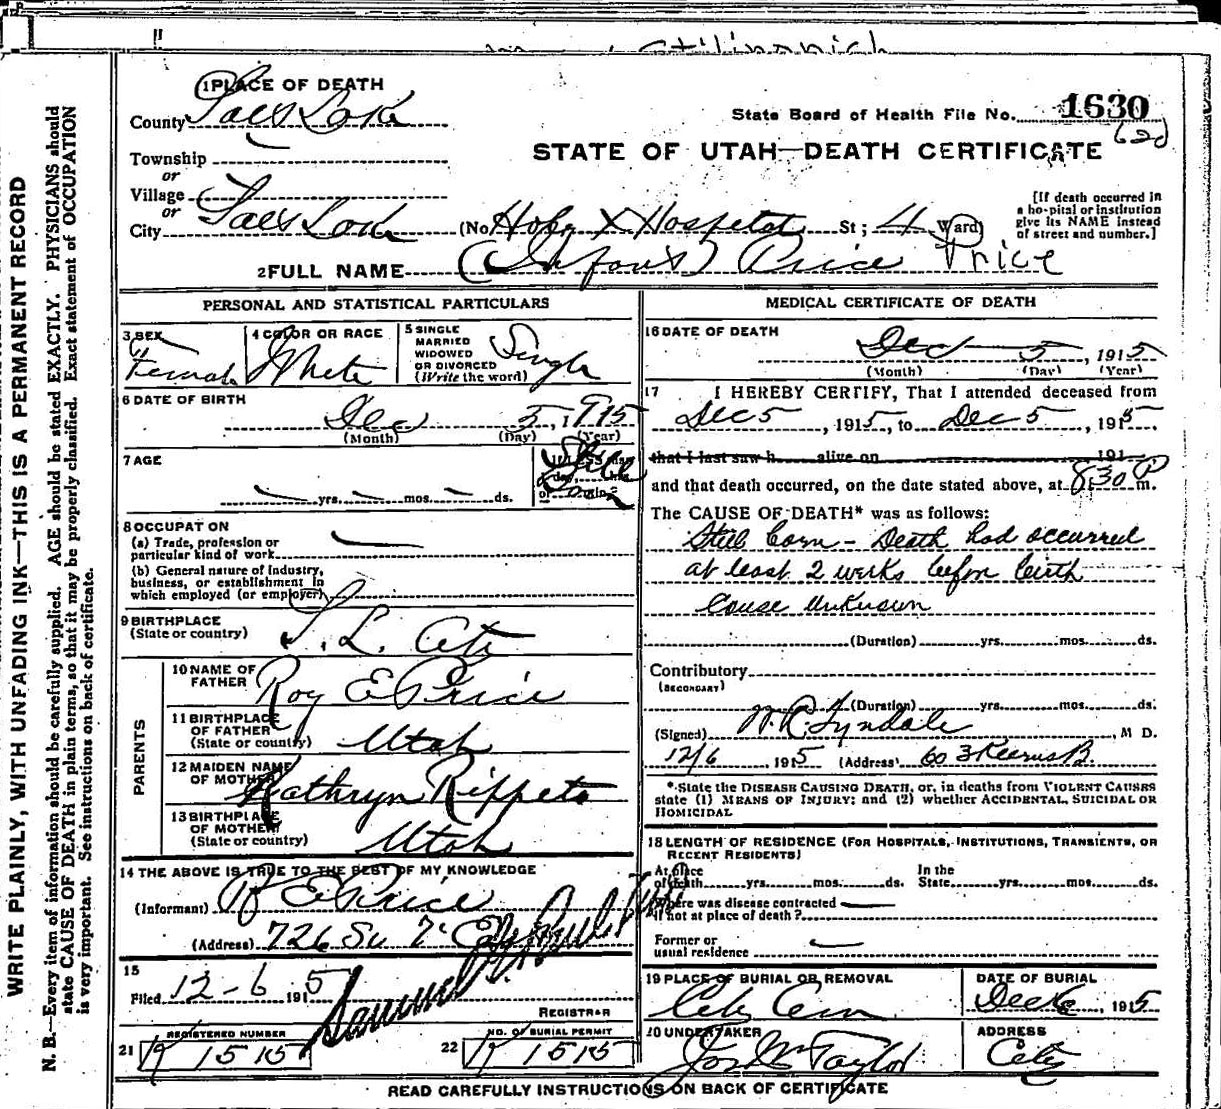 WRITE PLAINLY, WITH UNFADING INK—THIS IS A PERMANENT RECORD
N. B.—Every item of information should be carefully supplied. AGE should be stated EXACTLY. PHYSICIANS should
state CAUSE OF DEATH in plain terms, so that it may be properly classified. Exact statement of OCCUPATION
is very important. See instructions on back of certificate.
1 PLACE OF DEATH
County Salt Lake
State Board of Health File No. 1630
Township
or
Village
or
City Salt Lake
STATE OF UTAH—DEATH CERTIFICATE
(No Holy X Hospital St; 4 Ward)
[If death occurred in
a hospital or institution
give its NAME instead
of street and number.]
2 FULL NAME (Infant) Price Price
PERSONAL AND STATISTICAL PARTICULARS
3 SEX Female
4 COLOR OR RACE White
5 SINGLE
MARRIED
WIDOWED
OR DIVORCED
(Write the word) Single
6 DATE OF BIRTH
Dec 5, 1915
(Month) (Day) (Year)
7 AGE
yrs. mos. ds.
Still Born
8 OCCUPATION
(a) Trade, profession or
particular kind of work
(b) General nature of Industry,
business, or establishment in
which employed (or employer)
9 BIRTHPLACE
(State or country) S. L. City
PARENTS
10 NAME OF
FATHER Roy E Price
11 BIRTHPLACE
OF FATHER
(State or country) Utah
12 MAIDEN NAME
OF MOTHER Kathryn Rippeto
13 BIRTHPLACE
OF MOTHER
(State or country) Utah
14 THE ABOVE IS TRUE TO THE BEST OF MY KNOWLEDGE
(Informant) R E Price
(Address) 726 So 7
15
Filed 12-6 1915 Samuel
REGISTRAR
REGISTERED NUMBER
21 1515
NO. OF BURIAL PERMIT
22 1515
MEDICAL CERTIFICATE OF DEATH
16 DATE OF DEATH
Dec 5, 1915
(Month) (Day) (Year)
17 I HEREBY CERTIFY, That I attended deceased from
Dec 5, 1915, to Dec 5, 1915
that I last saw h alive on 191
and that death occurred, on the date stated above, at 8.30 P m.
The CAUSE OF DEATH* was as follows:
Still born - Death had occurred
at least 2 weeks before birth
Cause Unknown
(Duration) yrs. mos. ds.
Contributory
(SECONDARY)
(Duration) yrs. mos. ds.
(Signed) W. R. Tyndale, M D.
12/6, 1915 (Address) 603 Kearns B.
*State the DISEASE CAUSING DEATH, or, in deaths from VIOLENT CAUSES
state (1) MEANS OF INJURY; and (2) whether ACCIDENTAL, SUICIDAL OR
HOMICIDAL
18 LENGTH OF RESIDENCE (FOR HOSPITALS, INSTITUTIONS, TRANSIENTS, OR
RECENT RESIDENTS)
At place
of death yrs. mos. ds.
In the
State yrs. mos. ds.
Where was disease contracted
if not at place of death?
Former or
usual residence
19 PLACE OF BURIAL OR REMOVAL
City Cem
DATE OF BURIAL
Dec 6, 1915
20 UNDERTAKER
Jos Wm Taylor
ADDRESS
City
READ CAREFULLY INSTRUCTIONS ON BACK OF CERTIFICATE